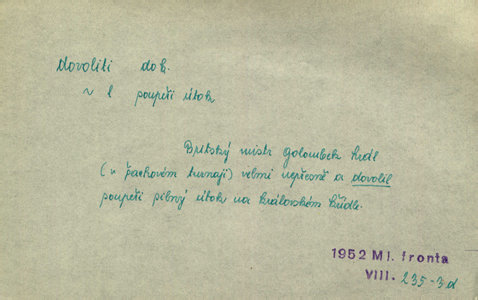 dovoliti dok.
~ l soupeři útok
Britský mistr Golombek hrál
(v šachovém turnaji) velmi nepřesně a dovolil
soupeři silný útok na královském křídle.
1952 Ml. fronta
VIII. 235-3d